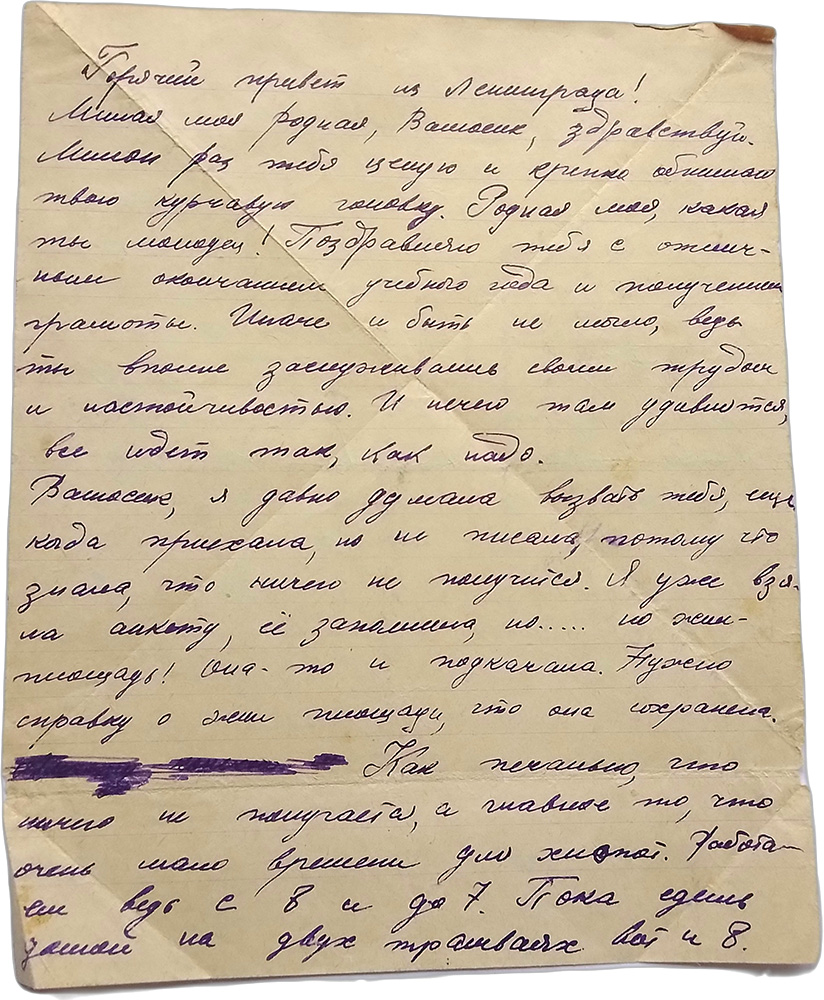 Горячий привет из Ленинграда!
Милая моя родная, Валюсик, здравствуй.
Милон раз тебя целую и крепко обнимаю
твою курчавую головку. Родная моя, какая
ты молодец! Поздравляю тебя с отлич-
ным окончанием учебного года и получением
грамоты. Иначе и быть не могло, ведь
ты вполне заслуживаешь своим трудом
и настойчивостью. И нечего там удивлятся,
все идет так, как надо.
Валюсик, я давно думала вызвать тебя, еще
когда приехала, но не писала, потому что
знала, что ничего не получится. Я уже взя-
ла анкету, её заполнила, но..... но жил-
площадь! Она-то и подкачала. Нужно
справку о жил площади, что она сохранена.
Как печально, что
ничего не получается, а главное то, что
очень мало времени для хлопот. Работа-
ем ведь с 8 и до 7. Пока едешь
домой на двух трамваях вот и 8.